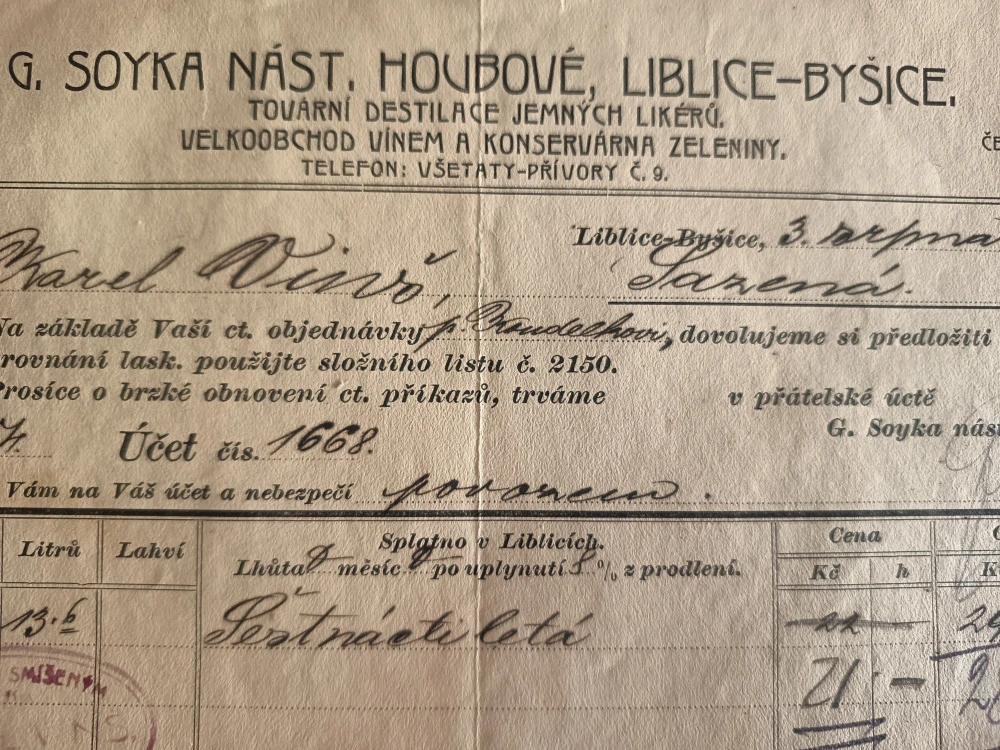 G. SOYKA NÁST. HOUBOVÉ, LIBLICE-BYŠICE.
TOVÁRNÍ DESTILACE JEMNÝCH LIKÉRŮ.
VELKOOBCHOD VÍNEM A KONSERVÁRNA ZELENINY.
TELEFON: VŠETATY-PŘÍVORY Č. 9.
Liblice-Byšice, 3. srpna
Karel Vinš, Sazená.
Na základě Vaší ct. objednávky p. dovolujeme si předložiti
rovnání lask. použijte složního listu č. 2150.
Prosíce o brzké obnovení ct. příkazů, trváme v přátelské úctě
G. Soyka nást
Účet čís. 1668.
Vám na Váš účet a nebezpečí povozem.
Litrů Lahví Splatno v Liblicích. Cena
Lhůta měsíc po uplynutí % z prodlení. Kč h K
13.6 Šestnáctiletá 22
SMÍŠENÝM 21 -